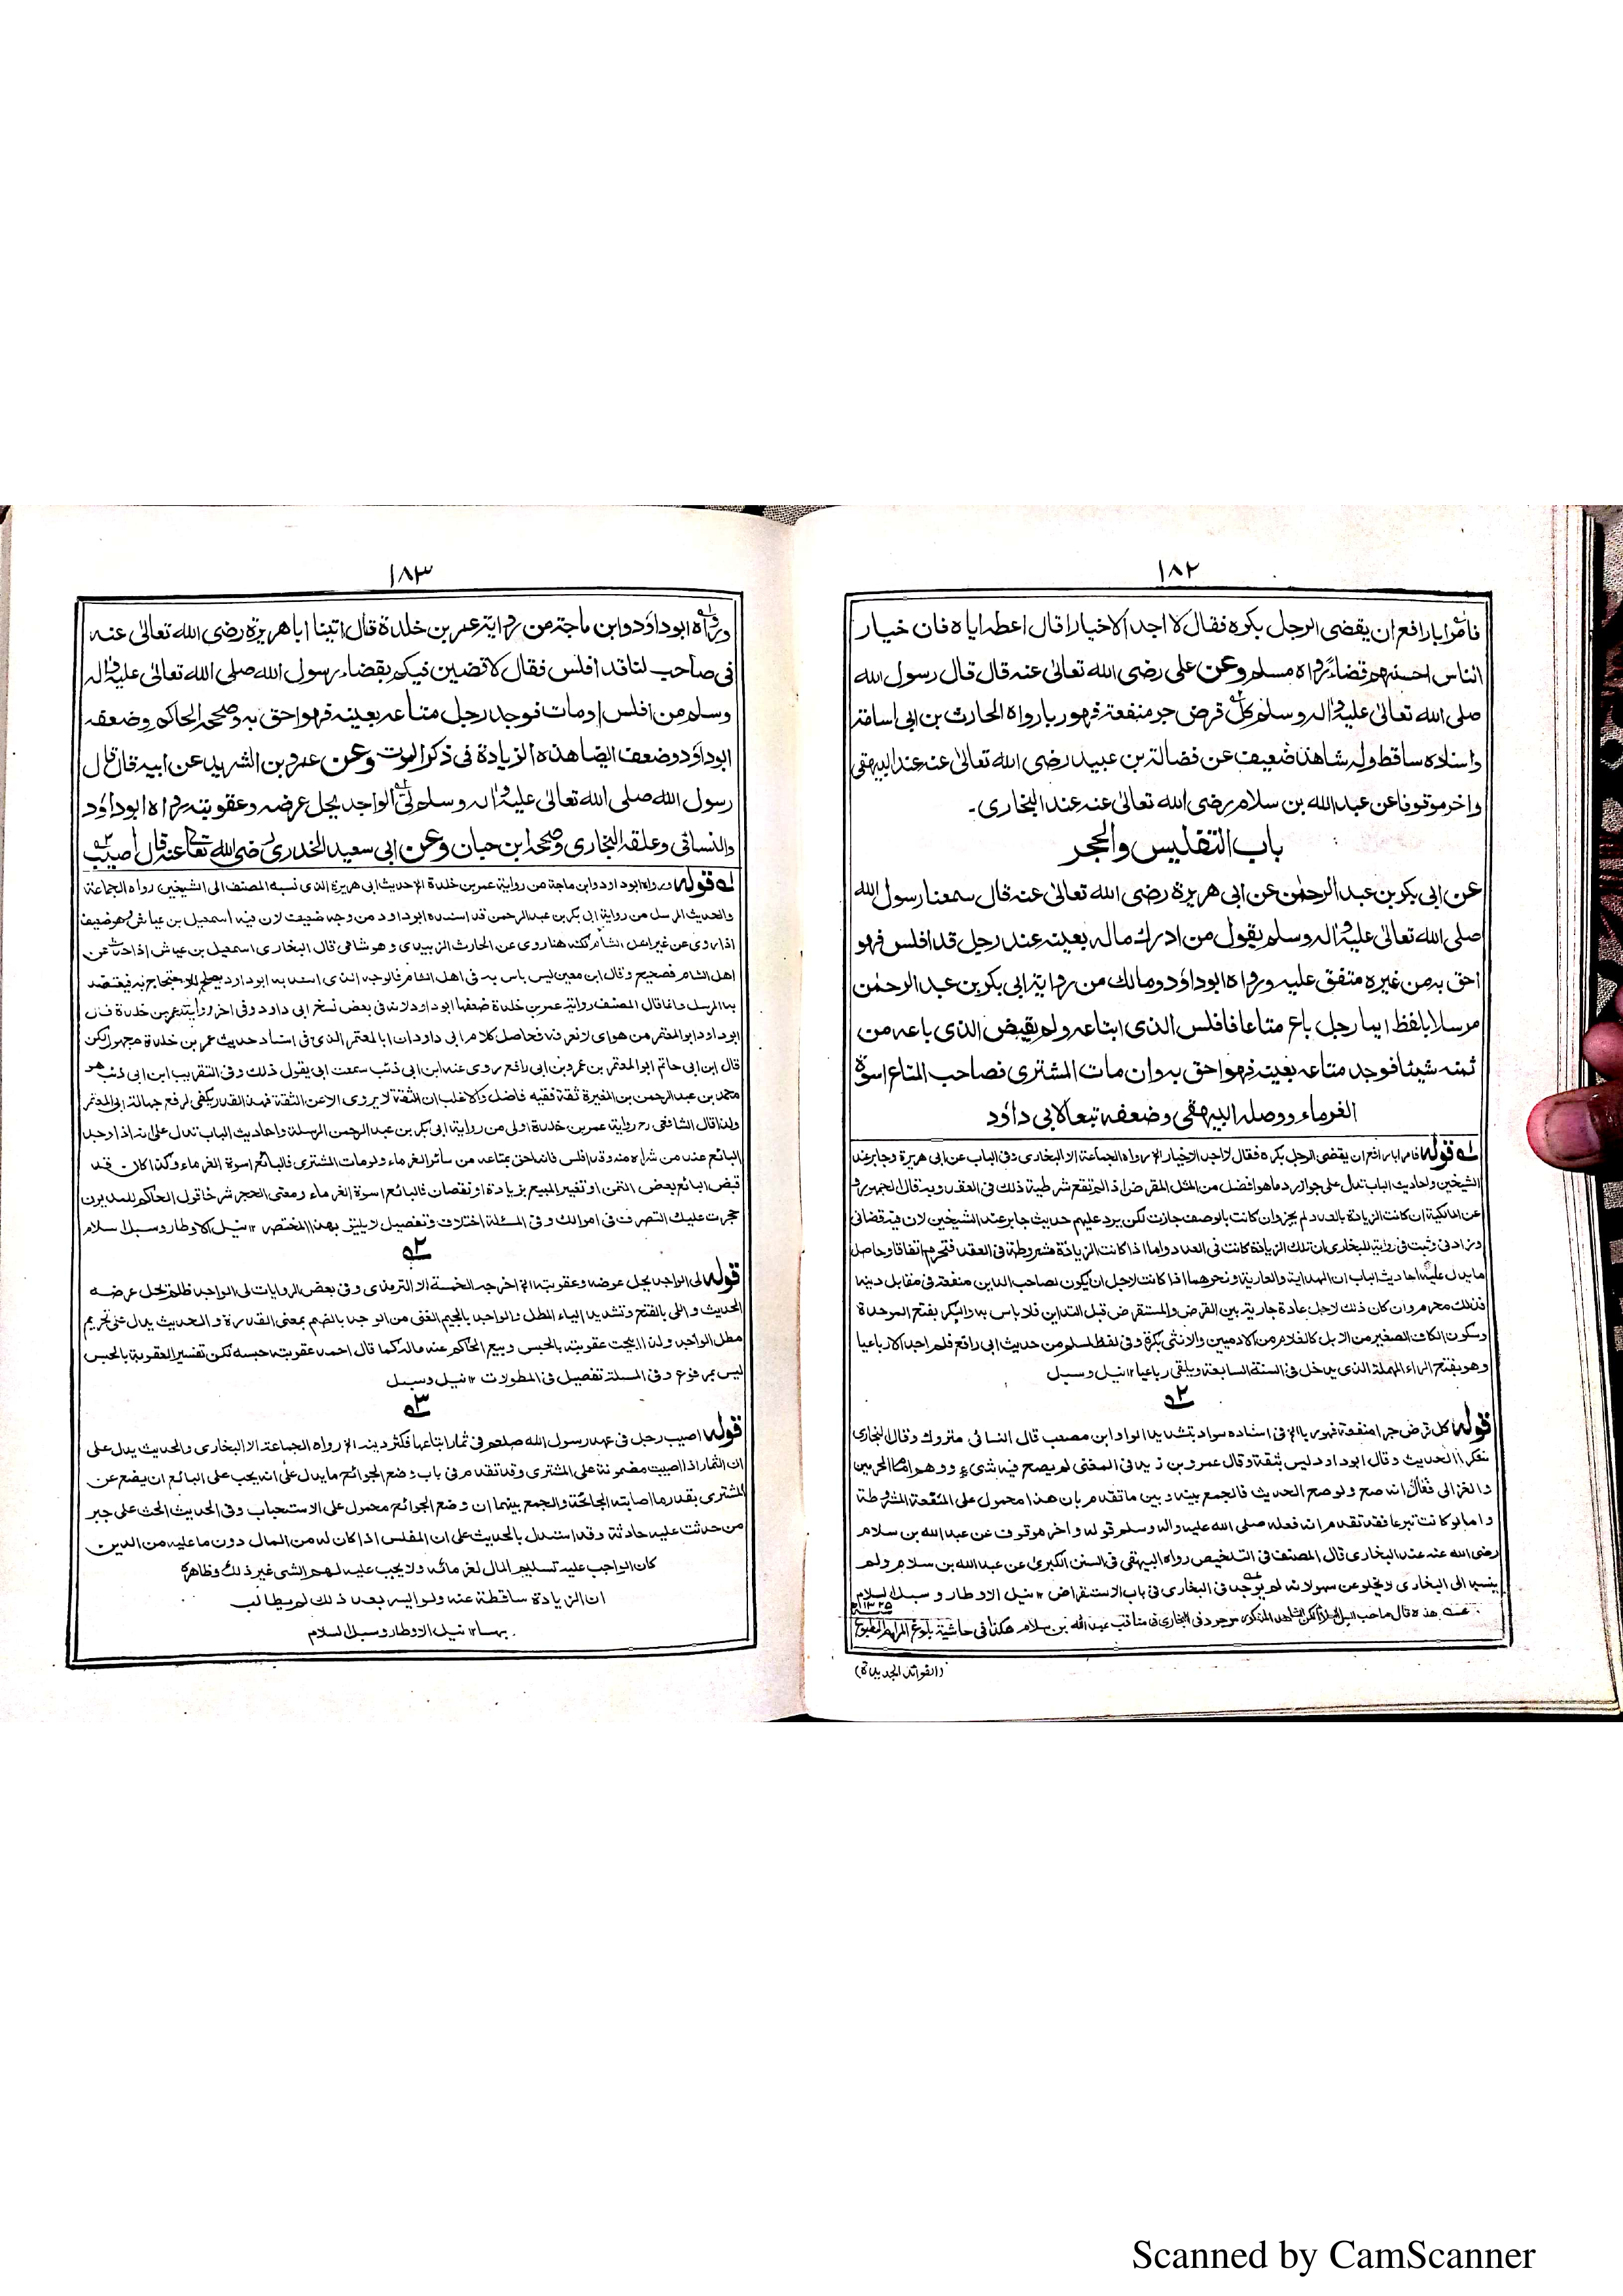 ١٨٢
فامر ابا رافع ان يقضى الرجل بكره فقال لا اجد الا خيارا قال اعطه اياه فان خيار
الناس احسنهم قضاء رواه مسلم وعن على رضى الله تعالىٰ عنه قال قال رسول الله
صلى الله تعالىٰ عليه واله وسلم كل قرض جر منفعة فهو ربا رواه الحارث بن ابى اسامة
واسناده ساقط وله شاهد ضعيف عن فضالة بن عبيد رضى الله تعالىٰ عنه عند البيهقى
واخر موقوفا عن عبدالله بن سلام رضى الله تعالىٰ عنه عند البخارى۔
باب التفليس والحجر
عن ابى بكر بن عبد الرحمٰن عن ابى هريرة رضى الله تعالىٰ عنه قال سمعنا رسول الله
صلى الله تعالىٰ عليه واله وسلم يقول من ادرك ماله بعينه عند رجل قد افلس فهو
احق به من غيره متفق عليه ورواه ابوداؤد ومالك من رواية ابى بكر بن عبد الرحمٰن
مرسلا بلفظ ايما رجل باع متاعا فافلس الذى ابتاعه ولم يقبض الذى باعه من
ثمنه شيئا فوجد متاعه بعينه فهو احق به وان مات المشترى فصاحب المتاع اسوة
الغرماء ووصله البيهقى وضعفه تبعا لابى داؤد
له قوله فامر ابا رافع ان يقضى الرجل بكره فقال لا اجد الا خيارا الخ رواه الجماعة الا البخارى وفى الباب عن ابى هريرة وجابر عند
الشيخين واحاديث الباب تدل على جواز رد ما هو افضل من المثل المقترض اذا لم تقع شرطية ذلك فى العقد وبه قال الجمهور و
عن المالكية ان كانت الزيادة بالعدد لم يجز وان كانت بالوصف جازت لكن يرد عليهم حديث جابر عند الشيخين لان فيه قضانى
وزادنى وثبت فى رواية للبخارى ان تلك الزيادة كانت فى العدد واما اذا كانت الزيادة مشروطة فى العقد فتحرم اتفاقا وحاصل
ما يدل عليه احاديث الباب ان الهداية والعارية ونحوهما اذا كانت لاجل ان يكون لصاحب الدين منفعة فى مقابل دينه
فذلك محرم وان كان ذلك لاجل عادة جارية بين القرض والمستقرض قبل التداين فلا باس به والبكر بفتح الموحدة
وسكون الكاف الصغير من الابل كالغلام من الادميين والانثى بكرة وفى لفظ لمسلم من حديث ابى رافع فلم اجد الا رباعيا
وهو بفتح الراء المهملة الذى يدخل فى السنة السابعة ويلقى رباعيا ١٢ نيل وسبل
٢ه
قوله كل قرض جر منفعة فهو ربا الخ فى اسناده سوار بتشديد الواو ابن مصعب قال النسائى متروك وقال البخارى
منكر الحديث وقال ابوداود ليس بثقة وقال عمرو بن زيد فى المغنى لم يصح فيه شىء ووهم امام الحرمين
والغزالى فقالا انه صح ولو صح الحديث فالجمع بينه وبين ما تقدم بان هذا محمول على المنفعة المشروطة
واما لو كانت تبرعا فقد تقدم انه فعله صلى الله عليه واله وسلم قوله واخر موقوف عن عبد الله بن سلام
رضى الله عنه عند البخارى قال المصنف فى التلخيص رواه البيهقى فى السنن الكبرىٰ عن عبدالله بن سلام ولم
ينسبه الى البخارى لا يخلو عن سهو لانه لم يوجد فى البخارى فى باب الاستقراض ١٢ نيل الاوطار و سبل السلام
عنه هذه قال صاحب السبل لكن الشاهد المذكور موجود فى البخارى فى مناقب عبد الله بن سلام هكذا فى حاشية بلوغ المرام المطبوع
(الفوائد الجديدة)
١٨٣
ورواه ابوداؤد وابن ماجة من رواية عمر بن خلدة قال اتينا ابا هريرة رضى الله تعالىٰ عنه
فى صاحب لنا قد افلس فقال لاقضين فيكم بقضاء رسول الله صلى الله تعالىٰ عليه واله
وسلم من افلس او مات فوجد رجل متاعه بعينه فهو احق به وصححه الحاكم وضعفه
ابوداؤد وضعف ايضا هذه الزيادة فى ذكر الموت وعن عمرو بن الشريد عن ابيه قال قال
رسول الله صلى الله تعالىٰ عليه واله وسلم لى الواجد يحل عرضه وعقوبته رواه ابوداؤد
والنسائى وعلقه البخارى وصححه ابن حبان وعن ابى سعيد الخدرى رضى الله تعالىٰ عنه قال اصيب
له قوله ورواه ابوداود وابن ماجة من رواية عمر بن خلدة الخ حديث ابى هريرة الذى نسبه المصنف الى الشيخين رواه الجماعة
والحديث المرسل من رواية ابى بكر بن عبدالرحمن قد اسنده ابوداود من وجه ضعيف لان فيه اسمعيل بن عياش وهو ضعيف
اذا روى عن غير اهل الشام لكنه هنا روى عن الحارث الزبيدى وهو شامى قال البخارى اسمعيل بن عياش اذا حدث عن
اهل الشام فصحيح وقال ابن معين ليس باس به فى اهل الشام فالوجه الذى اسند به ابوداود يصلح للاحتجاج به فيعتضد
به المرسل وانما قال المصنف رواية عمر بن خلدة ضعفها ابوداود لانه فى بعض نسخ ابى داود وفى اخر رواية عمر بن خلدة قال
ابوداود ابو المعتمر من هو اى لا نعرفه فحاصل كلام ابى داود ان ابا المعتمر الذى فى اسناد حديث عمر بن خلدة مجهول لكن
قال ابن ابى حاتم ابو المعتمر بن عمرو بن ابى رافع روى عنه ابن ابى ذئب سمعت ابى يقول ذلك وفى التقريب ابن ابى ذئب هو
محمد بن عبدالرحمن بن المغيرة ثقة فقيه فاضل والاغلب ان الثقة لا يروى الا عن الثقة فهذا القدر يكفى لرفع جهالة ابى المعتمر
ولذا قال الشافعى رح رواية عمر بن خلدة اولى من رواية ابى بكر بن عبد الرحمن المرسلة واحاديث الباب تدل على انه اذا وجد
البائع عند من شراه منه وقد افلس فانه احق بمتاعه من سائر الغرماء ولو مات المشترى فالبائع اسوة الغرماء وكذا ان كان قد
قبض البائع بعض الثمن او تغير المبيع بزيادة او نقصان فالبائع اسوة الغرماء ومعنى الحجر شرعا قول الحاكم للمديون
حجرت عليك التصرف فى اموالك وفى المسئلة اختلاف وتفصيل لا يليق بهذا المختصر ١٢ نيل الاوطار وسبل السلام
٢ه
قوله لى الواجد يحل عرضه وعقوبته الخ اخرجه الخمسة الا الترمذى وفى بعض الروايات لى الواجد ظلم يحل عرضه
الحديث واللى بالفتح وتشديد الياء المطل والواجد بالجيم الغنى من الوجد بالضم بمعنى القدرة والحديث يدل على تحريم
مطل الواجد ولذا ابيحت عقوبته بالحبس وبيع الحاكم عنه ماله كما قال احمد عقوبته حبسه لكن تفسير العقوبة بالحبس
ليس بمرفوع وفى المسئلة تفصيل فى المطولات ١٢ نيل وسبل
٣ه
قوله اصيب رجل فى عهد رسول الله صلعم فى ثمار ابتاعها فكثر دينه الخ رواه الجماعة الا البخارى والحديث يدل على
ان الثمار اذا اصيبت مضمونة على المشترى وقد تقدم فى باب وضع الجوائح ما يدل على انه يجب على البائع ان يضع عن
المشترى بقدر ما اصابته الجائحة والجمع بينهما ان وضع الجوائح محمول على الاستحباب وفى الحديث الحث على جبر
من حدثت عليه حادثة وقد استدل بالحديث على ان المفلس اذا كان له من المال دون ما عليه من الدين
كان الواجب عليه تسليم المال لغرمائه ولا يجب عليه لهم الشئ غير ذلك وظاهره
ان الزيادة ساقطة عنه ولو ايسر بعد ذلك لم يطالب
بها ١٢ نيل الاوطار وسبل السلام
Scanned by CamScanner